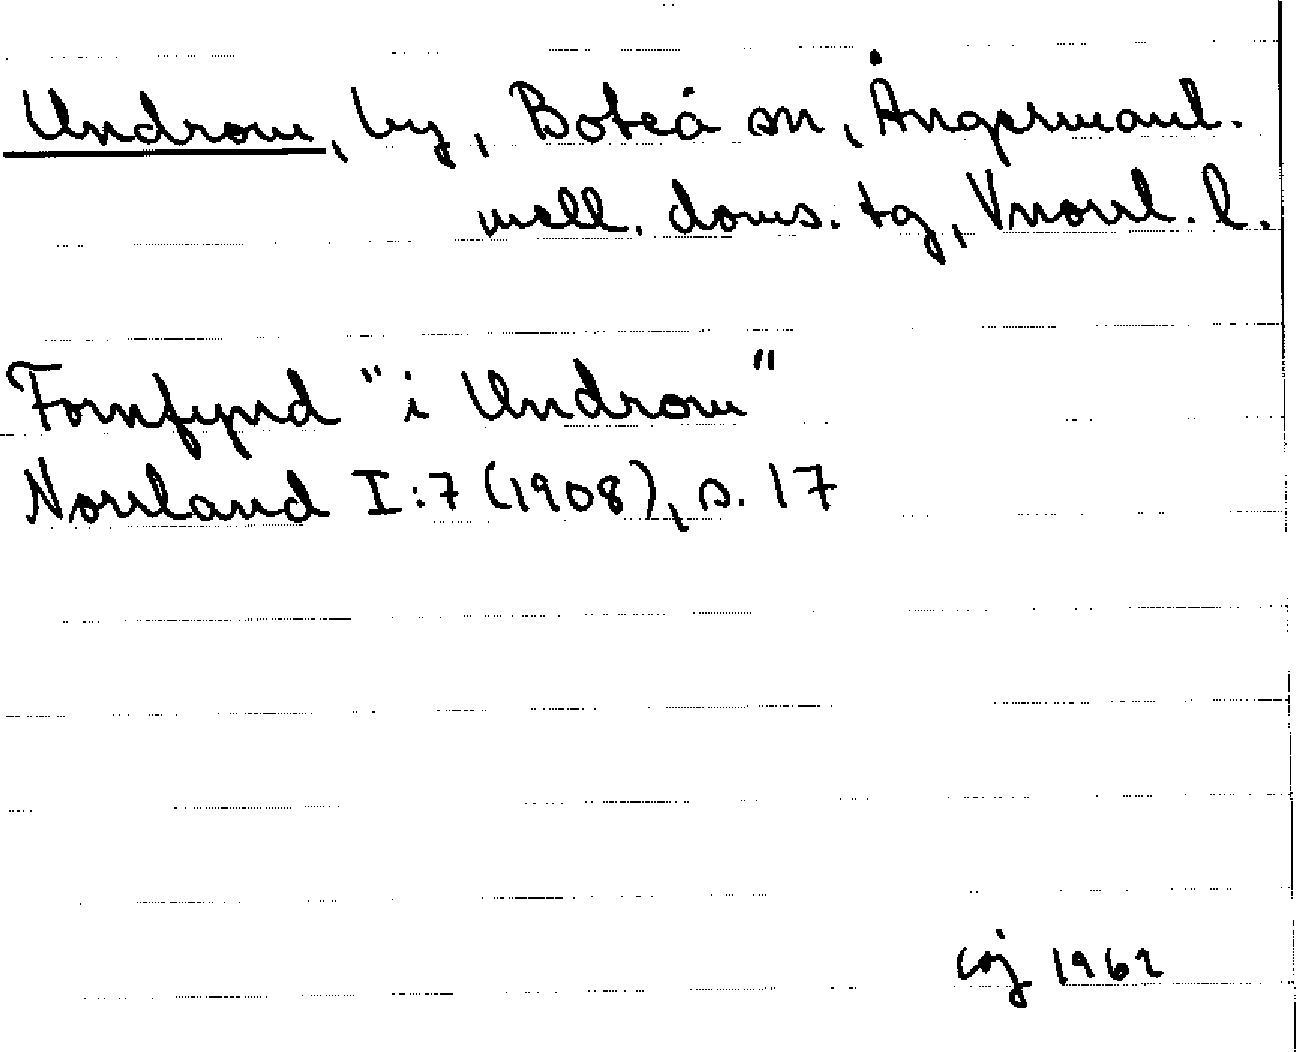 Undrom, by, Boteå sn, Ångermanl.
mell. doms. tg, Vnorrl. l.
Fornfynd "i Undrom"
Norrland I:7 (1908), s. 17
1962